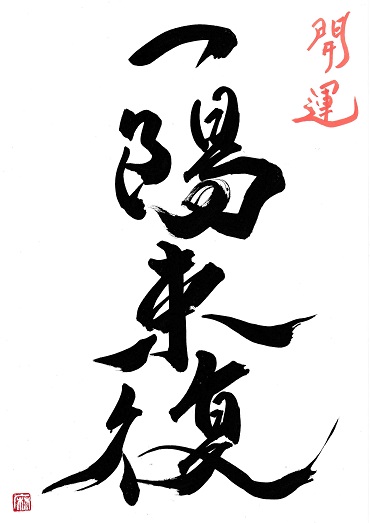 開運
一陽来復